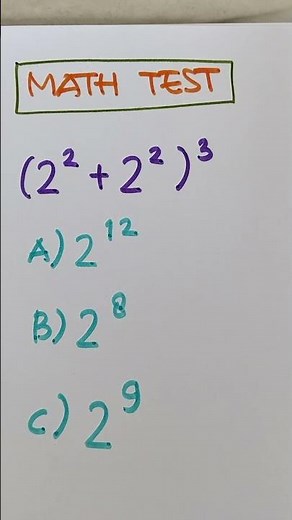 MATH TEST
(2² + 2²)³
A) 2¹²
B) 2⁸
C) 2⁹